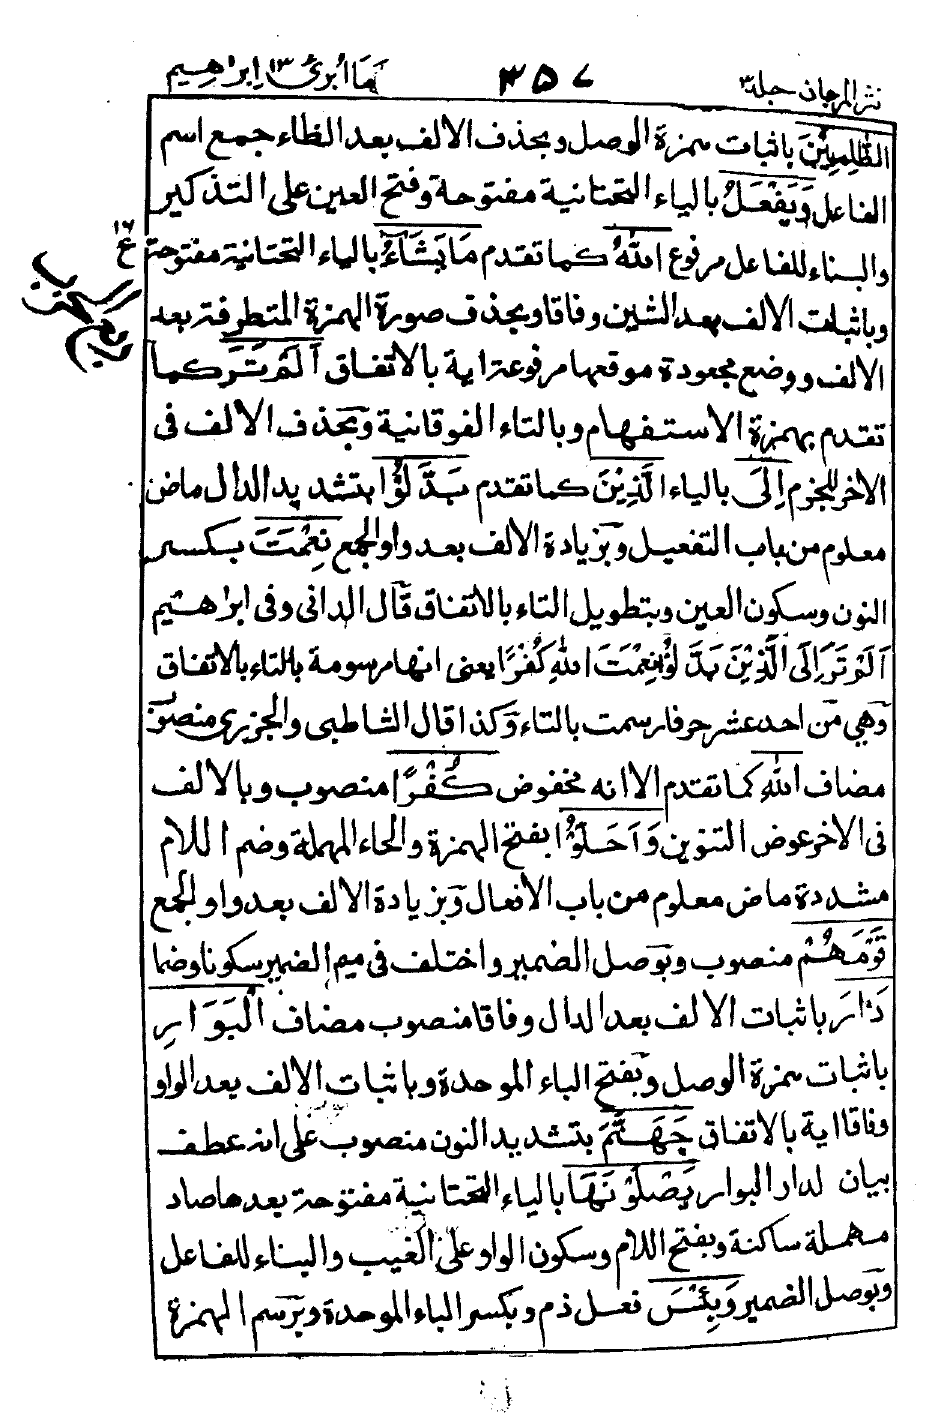 نثر المرجان جلد ۳ ۳۵۷ وما ابرئ ۱۳ ابراهيم
الظّٰلِمِيْنَ باثبات همزة الوصل وبحذف الالف بعد الظاء جمع اسم
الفاعل وَيَفْعَلُ بالياء التحتانية مفتوحة وفتح العين على التذكير
والبناء للفاعل مرفوع اللهُ كما تقدم مَا يَشَآءُ بالياء التحتانية مفتوحة
وباثبات الالف بعد الشين وفاقا وبحذف صورة الهمزة المتطرفة بعد
الالف ووضع مجعودة موقعها مرفوعة اية بالاتفاق اَلَمْ تَرَ كما
تقدم بهمزة الاستفهام وبالتاء الفوقانية وبحذف الالف فى
الاخر للجزم اِلَى بالياء الَّذِيْنَ كما تقدم بَدَّلُوْا بتشديد الدال ماض
معلوم من باب التفعيل وبزيادة الالف بعد واو الجمع نِعْمَتَ بكسر
النون وسكون العين وبتطويل التاء بالاتفاق قال الدانى وفى ابراهيم
اَلَمْ تَرَ اِلَى الَّذِيْنَ بَدَّلُوْا نِعْمَتَ اللهِ كُفْرًا يعنى انها مرسومة بالتاء بالاتفاق
وهي من احد عشر حرفا رسمت بالتاء وكذا قال الشاطبى والجزرى منصوب
مضاف اللهِ كما تقدم الا انه مخفوض كُفْرًا منصوب وبالالف
فى الاخر عوض التنوين وَاَحَلُّوْا بفتح الهمزة والحاء المهملة وضم اللام
مشددة ماض معلوم من باب الافعال وبزيادة الالف بعد واو الجمع
قَوْمَهُمْ منصوب وبوصل الضمير واختلف فى ميم الضمير سكونا وضما
دَارَ باثبات الالف بعد الدال وفاقا منصوب مضاف الْبَوَارِ
باثبات همزة الوصل وبفتح الباء الموحدة وباثبات الالف بعد الواو
وفاقا اية بالاتفاق جَهَنَّمَ بتشديد النون منصوب على انه عطف
بيان لدار البوار يَصْلَوْنَهَا بالياء التحتانية مفتوحة بعدها صاد
مهملة ساكنة وبفتح اللام وسكون الواو على الغيب والبناء للفاعل
وبوصل الضمير وَبِئْسَ فعل ذم وبكسر الباء الموحدة وبرسم الهمزة
۱۶
ع